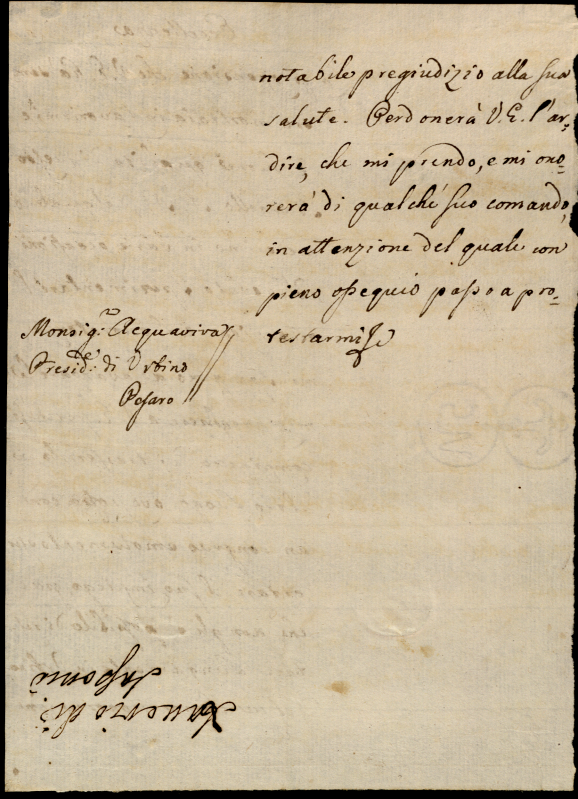 notabile pregiudizio alla sua
salute. Perdonerà V.E. l'ar-
dire, che mi prendo, e mi ono-
rerà di qualché suo comando,
in attenzione del quale con
pieno ossequio passo a pro-
testarmi
Monsig.r Acquaviva
Presid.te di Urbino
Pesaro